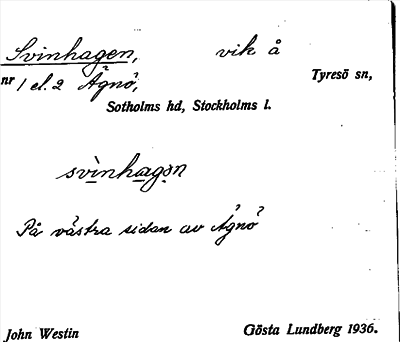 Svinhagen, vik å
nr 1 el. 2 Ägnö, Tyresö sn,
Sotholms hd, Stockholms l.
svìnhagən
På västra sidan av Ägnö
John Westin Gösta Lundberg 1936.